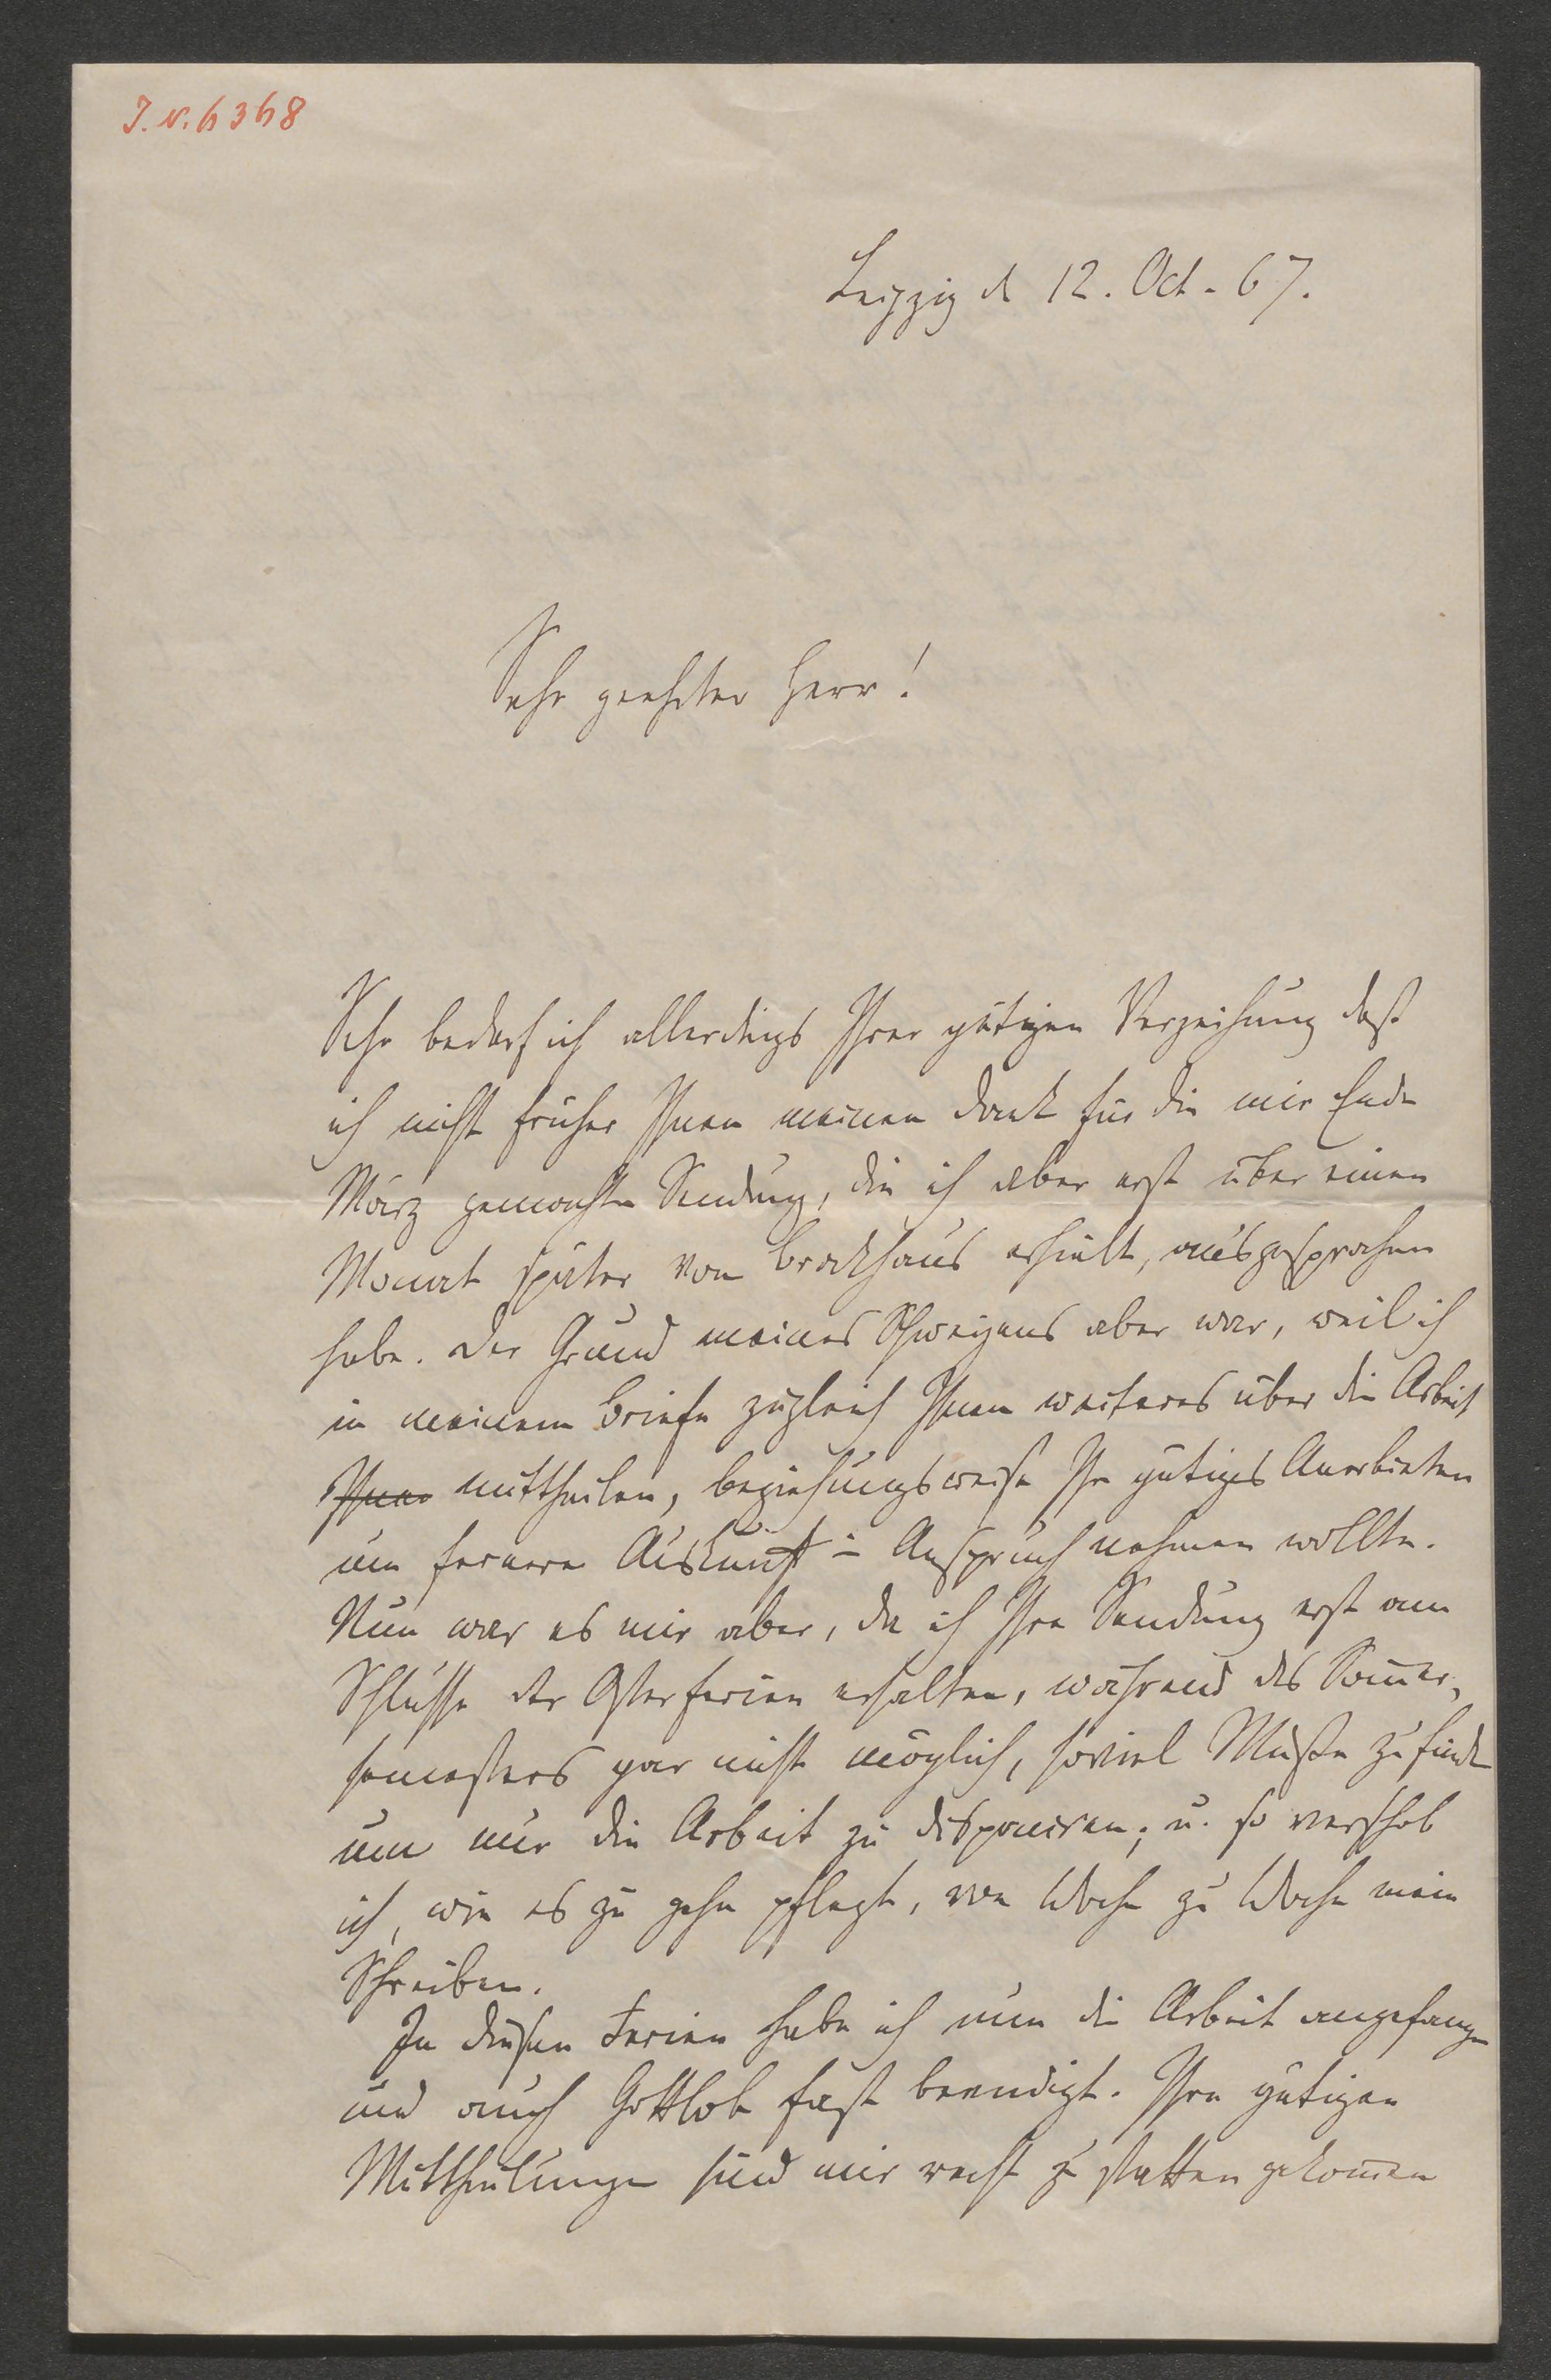 J. N. 6368
Leipzig d 12. Oct. 67.
Sehr geehrter Herr!
Sehr bedarf ich allerdings Ihrer gütigen Verzeihung daß
ich nicht früher Ihnen meinen Dank für die mir Ende
März gemachte Sendung, die ich aber erst über einen
Monat später von Brockhaus erhielt, ausgesprochen
habe. Der Grund meines Schweigens aber war, weil ich
in meinem Briefe zugleich Ihnen weiteres über die Arbeit
Ihnen mittheilen, beziehungsweise Ihr gütiges Anerbieten
um fernere Auskunft in Anspruch nehmen wollte.
Nun war es mir aber, da ich Ihre Sendung erst am
Schlusse der Osterferien erhalten, während des Som̅er-
semesters gar nicht möglich, soviel Muße zu finden
um nur die Arbeit zu disponiren; u. so verschob
ich, wie es zu gehn pflegt, von Woche zu Woche mein
Schreiben.
In diesen Ferien habe ich nun die Arbeit angefangen
und auch Gottlob fast beendigt. Ihre gütigen
Mittheilungen sind mir recht zu statten gekom̅en